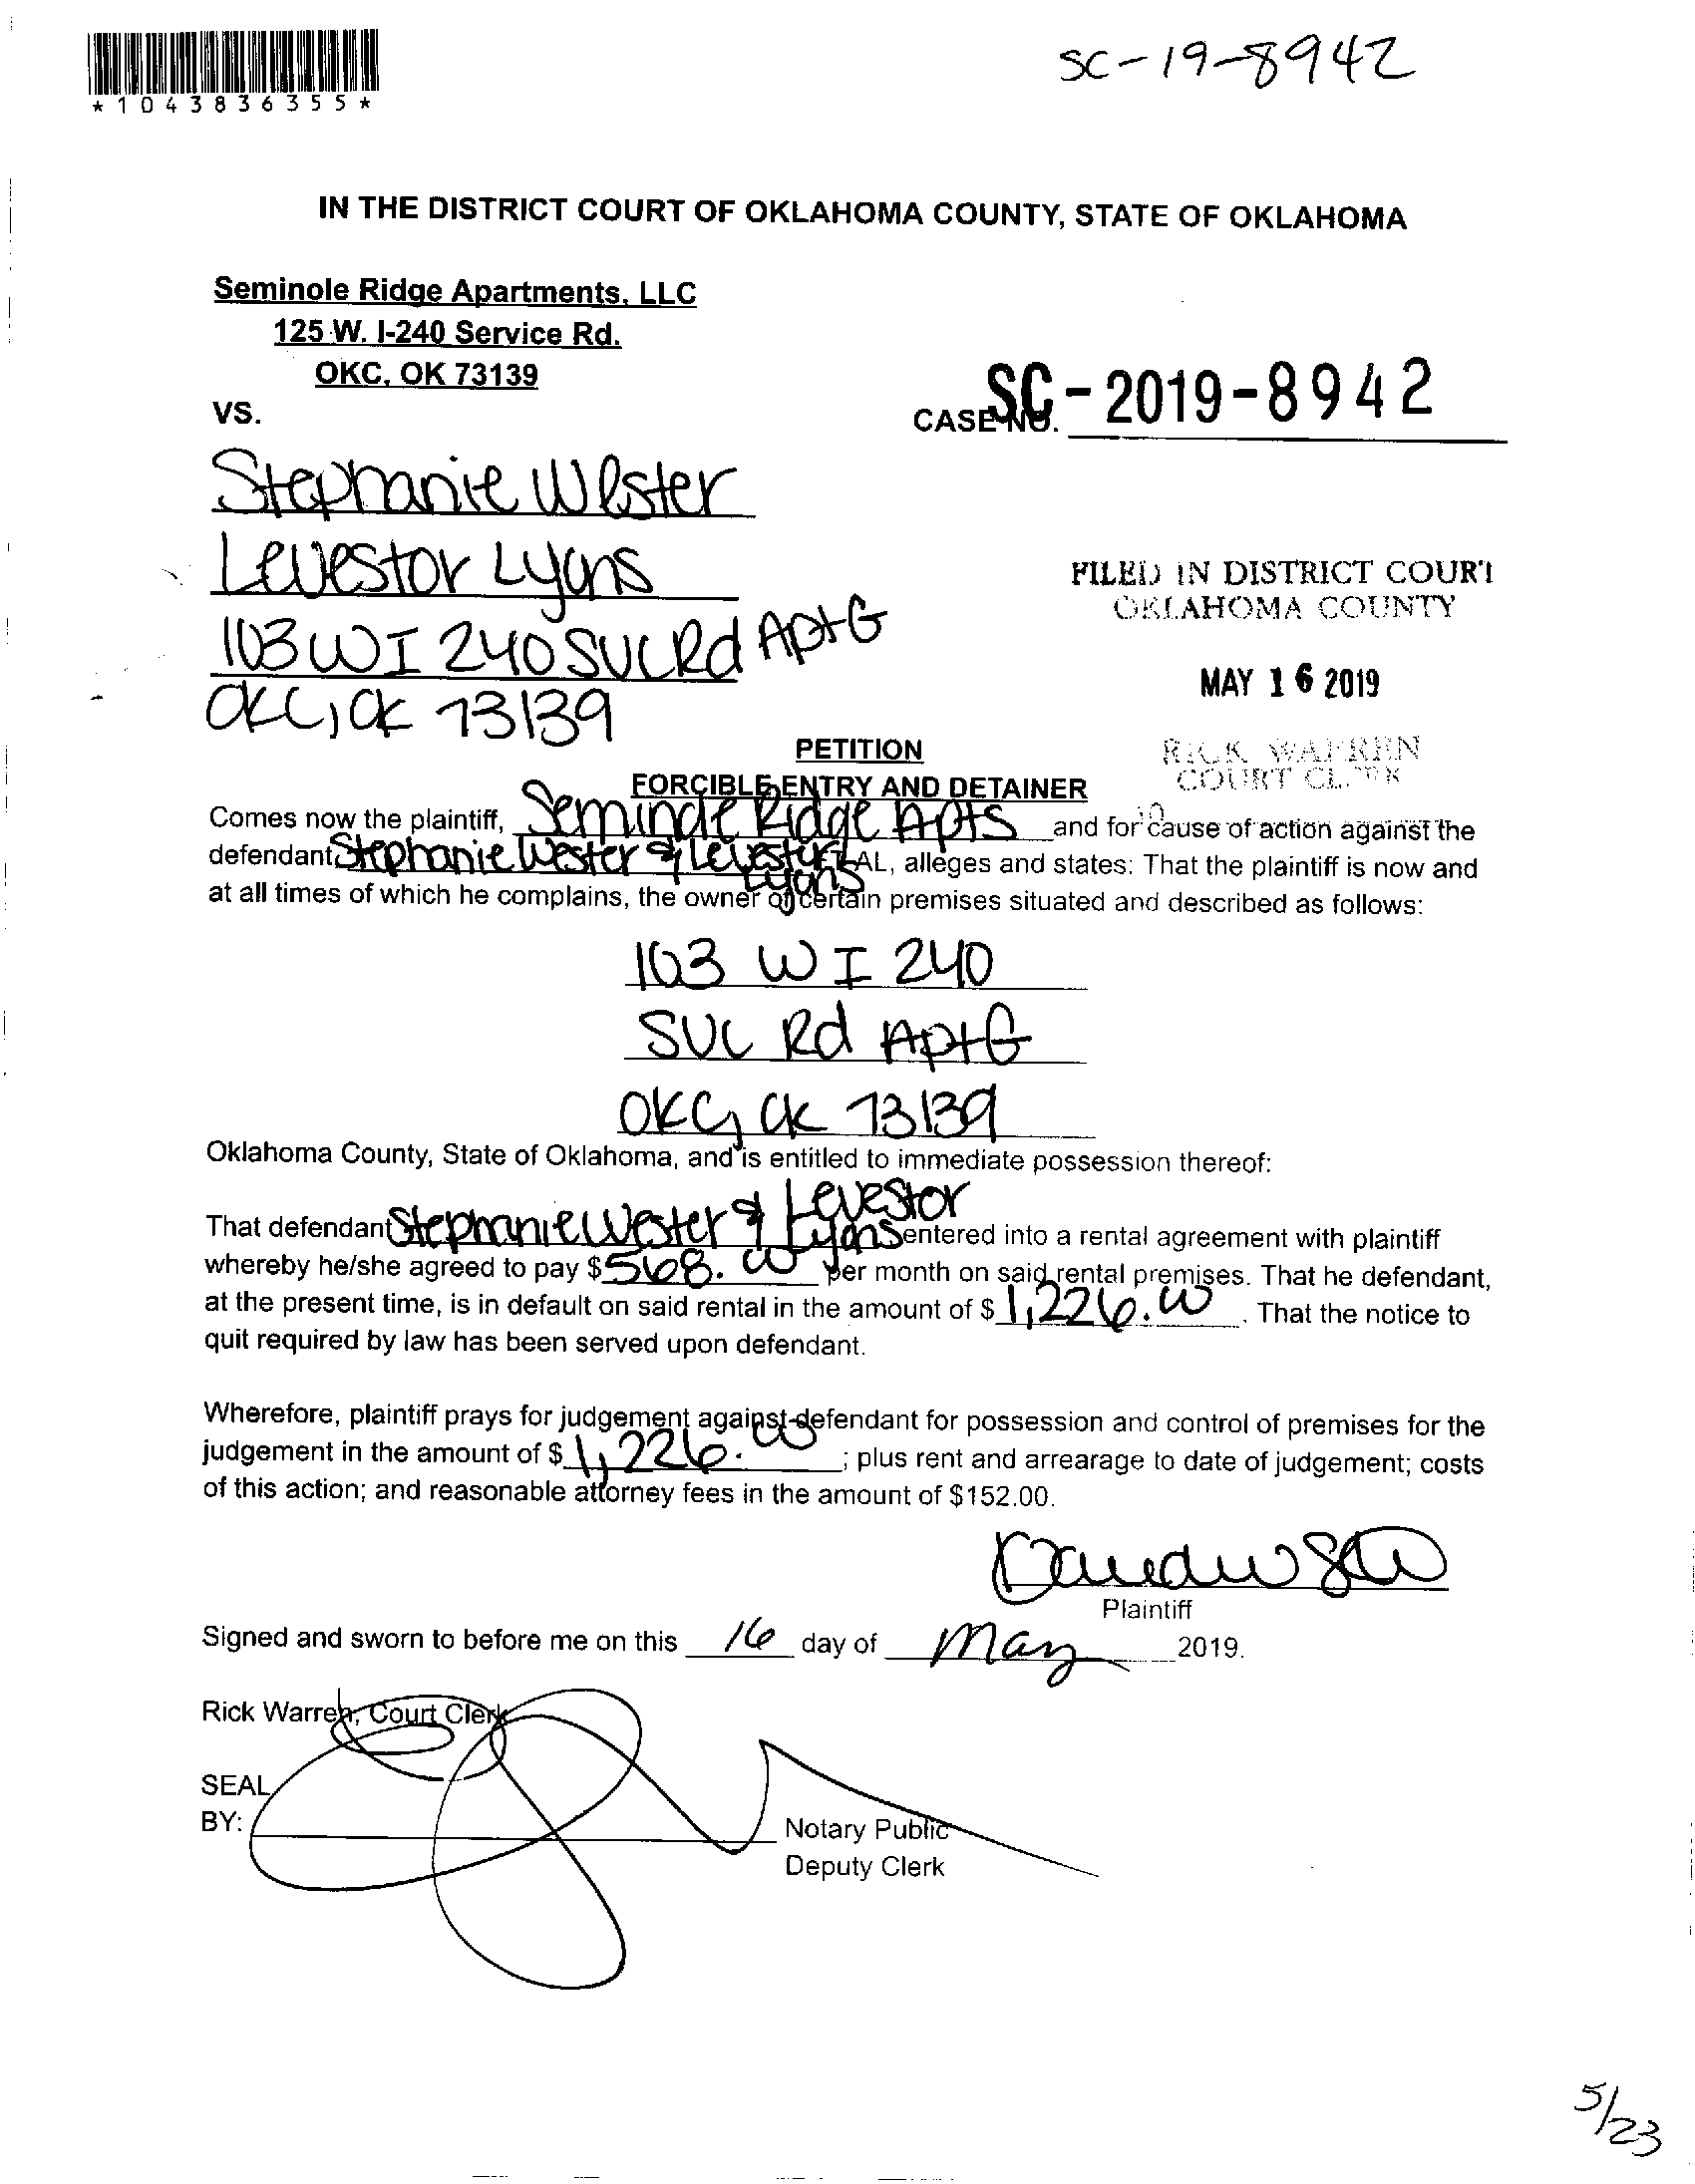 SC-19-8942
*1043836355*
IN THE DISTRICT COURT OF OKLAHOMA COUNTY, STATE OF OKLAHOMA
Seminole Ridge Apartments, LLC
125 W. I-240 Service Rd.
OKC, OK 73139
VS.
CASE NO. SC-2019-8942
Stephanie Wester
Levestor Lyons
103 W I 240 SVC Rd Apt G
OKC, OK 73139
FILED IN DISTRICT COURT
OKLAHOMA COUNTY
MAY 16 2019
RICK WARREN
COURT CLERK
PETITION
FORCIBLE ENTRY AND DETAINER
Comes now the plaintiff, Seminole Ridge Apts and for cause of action against the
defendant Stephanie Wester & Levestor Lyons ET AL, alleges and states: That the plaintiff is now and
at all times of which he complains, the owner of certain premises situated and described as follows:
103 W I 240
SVC Rd Apt G
OKC, OK 73139
Oklahoma County, State of Oklahoma, and is entitled to immediate possession thereof:
That defendant Stephanie Wester & Levestor Lyons entered into a rental agreement with plaintiff
whereby he/she agreed to pay $568.00 per month on said rental premises. That he defendant,
at the present time, is in default on said rental in the amount of $1,226.00. That the notice to
quit required by law has been served upon defendant.
Wherefore, plaintiff prays for judgement against defendant for possession and control of premises for the
judgement in the amount of $1,226.00; plus rent and arrearage to date of judgement; costs
of this action; and reasonable attorney fees in the amount of $152.00.
Plaintiff
Signed and sworn to before me on this 16 day of May 2019.
Rick Warren, Court Clerk
SEAL
BY:
Notary Public
Deputy Clerk
5/23